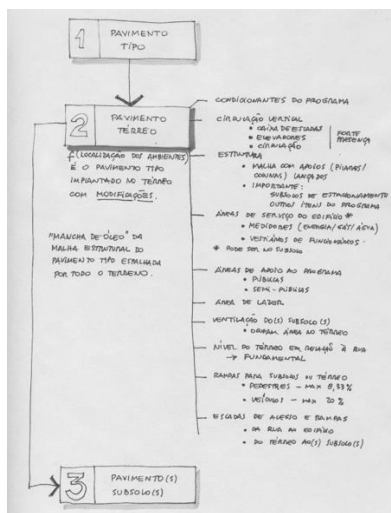 1
PAVIMENTO
TIPO
2
PAVIMENTO
TÉRREO
f(LOCALIZAÇÃO DOS AMBIENTES)
É O PAVIMENTO TIPO
IMPLANTADO NO TÉRREO
COM MODIFICAÇÕES.
"MANCHA DE ÓLEO" DA
MALHA ESTRUTURAL DO
PAVIMENTO TIPO ESPALHADA
POR TODO O TERRENO.
CONDICIONANTES DO PROGRAMA
CIRCULAÇÃO VERTICAL
• CAIXA DE ESCADAS
• ELEVADORES
• CIRCULAÇÃO
FORTE
PRESENÇA
ESTRUTURA
• MALHA COM APOIOS (PILARES/
CORTINAS) LANÇADOS
• IMPORTANTE:
SUBSOLOS DE ESTACIONAMENTO
OUTROS ITENS DO PROGRAMA
ÁREAS DE SERVIÇO DO EDIFÍCIO *
• MEDIDORES (ENERGIA/GÁS/ÁGUA)
• VESTIÁRIOS DE FUNCIONÁRIOS
* PODE SER NO SUBSOLO
ÁREAS DE APOIO AO PROGRAMA
• PÚBLICAS
• SEMI-PÚBLICAS
ÁREA DE LAZER
VENTILAÇÃO DO(S) SUBSOLO(S)
• OCUPAM ÁREA NO TÉRREO
NÍVEL DO TÉRREO EM RELAÇÃO À RUA
→ FUNDAMENTAL
RAMPAS PARA SUBSOLOS OU TÉRREO
• PEDESTRES – MAX 8,33%
• VEÍCULOS – MAX 20%
ESCADAS DE ACESSO E RAMPAS
• DA RUA AO EDIFÍCIO
• DO TÉRREO AO(S) SUBSOLO(S)
3
PAVIMENTO(S)
SUBSOLO(S)